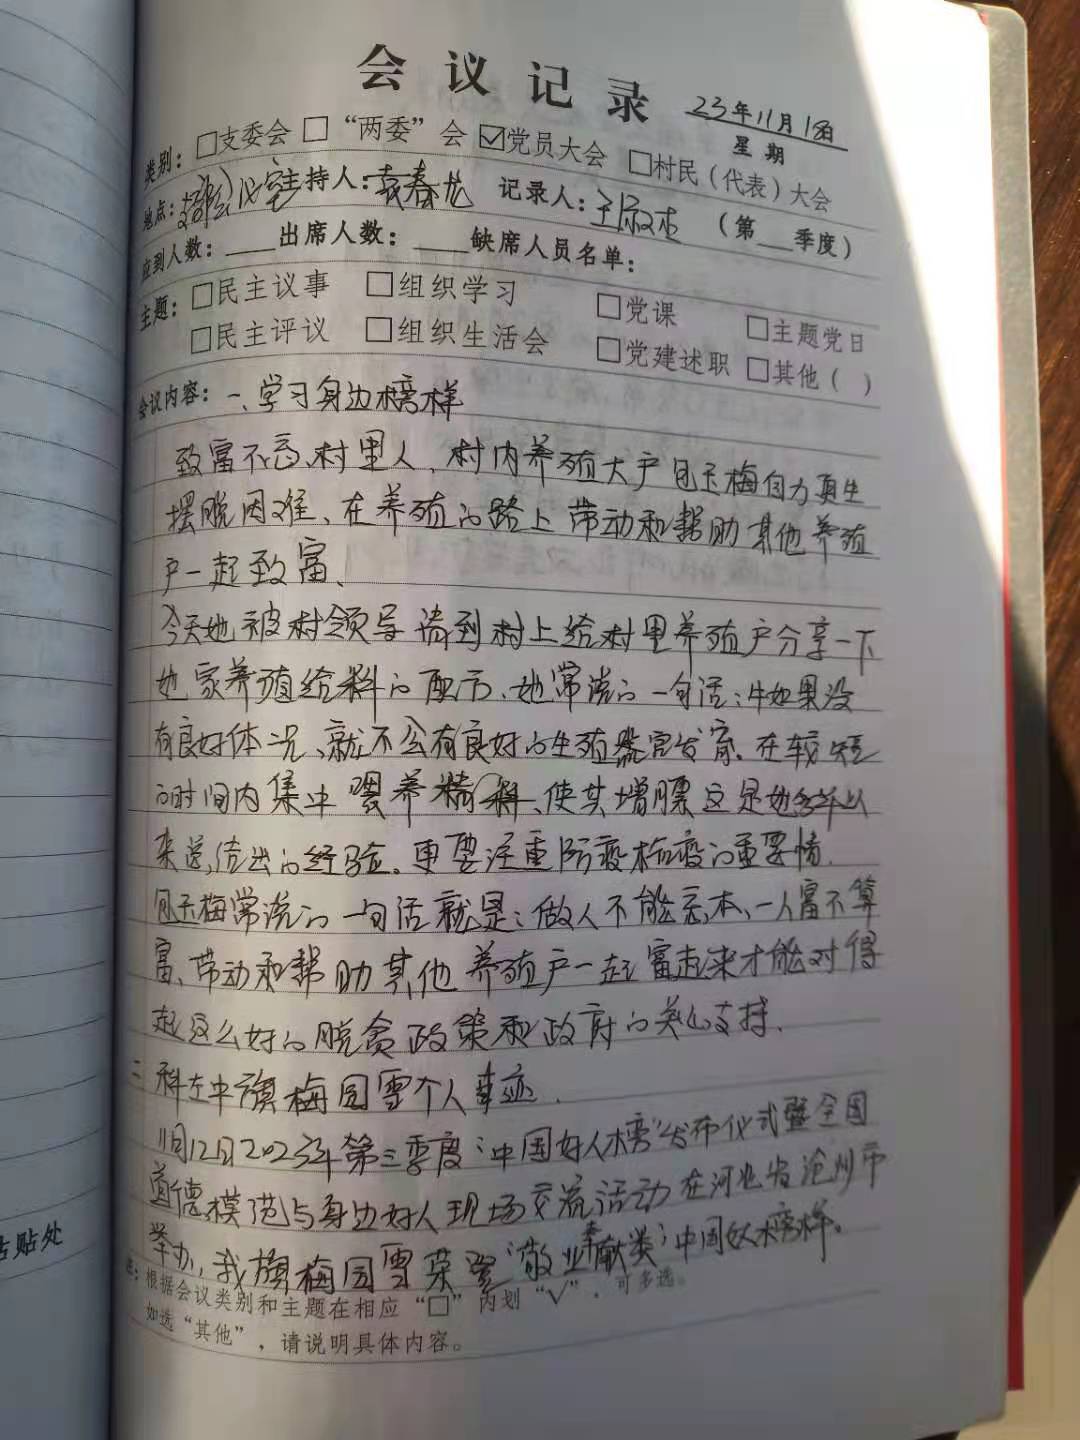 会议记录
23年11月18日
星期
类别：□支委会 □“两委”会 ☑党员大会 □村民（代表）大会
地点：村部会议室 主持人：袁春龙 记录人： （第__季度）
应到人数：____出席人数：____缺席人员名单：
主题：□民主议事 □组织学习 □党课 □主题党日
□民主评议 □组织生活会 □党建述职 □其他（ ）
会议内容：一、学习身边榜样
致富不忘村里人、村内养殖大户包玉梅自力更生
摆脱困难、在养殖的路上带动和帮助其他养殖
户一起致富、
今天她被村领导请到村上给村里养殖户分享一下
她家养殖给料的配方、她常说的一句话：牛如果没
有良好体况、就不会有良好的生殖器官发育。在较短
的时间内集中喂养精料、使其增膘这是她多年以
来总结出的经验。更要注重防疫检疫的重要情.
包玉梅常说的一句话就是：做人不能忘本、一人富不算
富、带动和帮助其他养殖户一起富起来才能对得
起这么好的脱贫政策和政府的关心支持.
二 科左中旗梅园雪个人事迹.
11月12日2023年第三季度“中国好人榜”发布仪式暨全国
道德模范与身边好人现场交流活动在河北省沧州市
举办，我旗梅园雪荣登“敬业奉献类”中国好人榜样。
注：根据会议类别和主题在相应“□”内划“√”，可多选。
如选“其他”，请说明具体内容。
占贴处